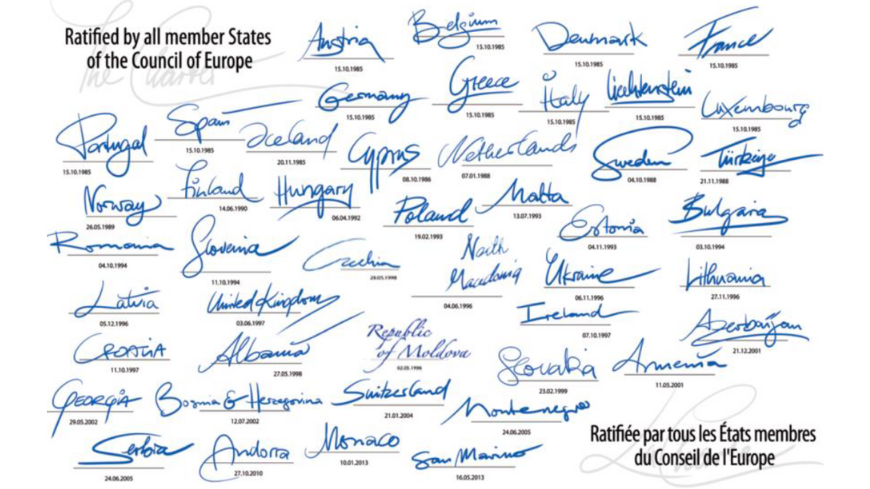 Ratified by all member States
of the Council of Europe
The Charter
Austria
15.10.1985
Belgium
15.10.1985
Denmark
15.10.1985
France
15.10.1985
Germany
15.10.1985
Greece
15.10.1985
Italy
15.10.1985
Liechtenstein
15.10.1985
Luxembourg
15.10.1985
Portugal
15.10.1985
Spain
15.10.1985
Iceland
20.11.1985
Cyprus
08.10.1986
Netherlands
07.01.1988
Sweden
04.10.1988
Türkiye
21.11.1988
Norway
26.05.1989
Finland
14.06.1990
Hungary
06.04.1992
Poland
19.02.1993
Malta
13.07.1993
Estonia
04.11.1993
Bulgaria
03.10.1994
Romania
04.10.1994
Slovenia
11.10.1994
Czechia
North
Macedonia
04.06.1996
Ukraine
06.11.1996
Lithuania
27.11.1996
Latvia
05.12.1996
United Kingdom
03.06.1997
Ireland
07.10.1997
Azerbaijan
21.12.2001
CROATIA
11.10.1997
Albania
27.05.1998
Republic
of Moldova
02.05.1998
Slovakia
23.02.1999
Armenia
11.05.2001
GEORGIA
29.05.2002
Bosnia & Herzegovina
12.07.2002
Switzerland
21.01.2004
Montenegro
24.06.2005
Serbia
24.06.2005
Andorra
27.10.2010
Monaco
10.01.2013
San Marino
16.05.2013
Ratifiée par tous les États membres
du Conseil de l'Europe